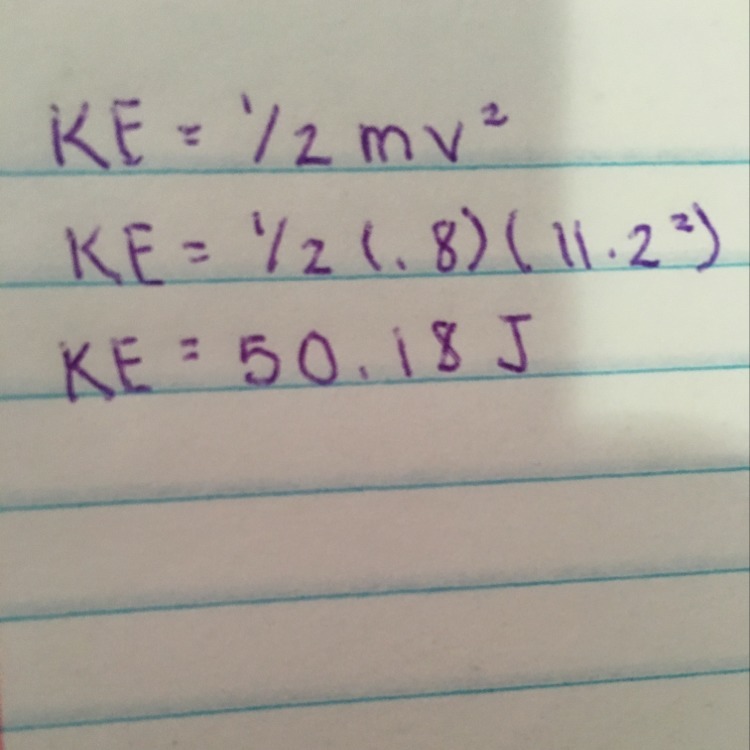 KE = 1/2 mv²
KE = 1/2 (.8)(11.2²)
KE = 50.18 J